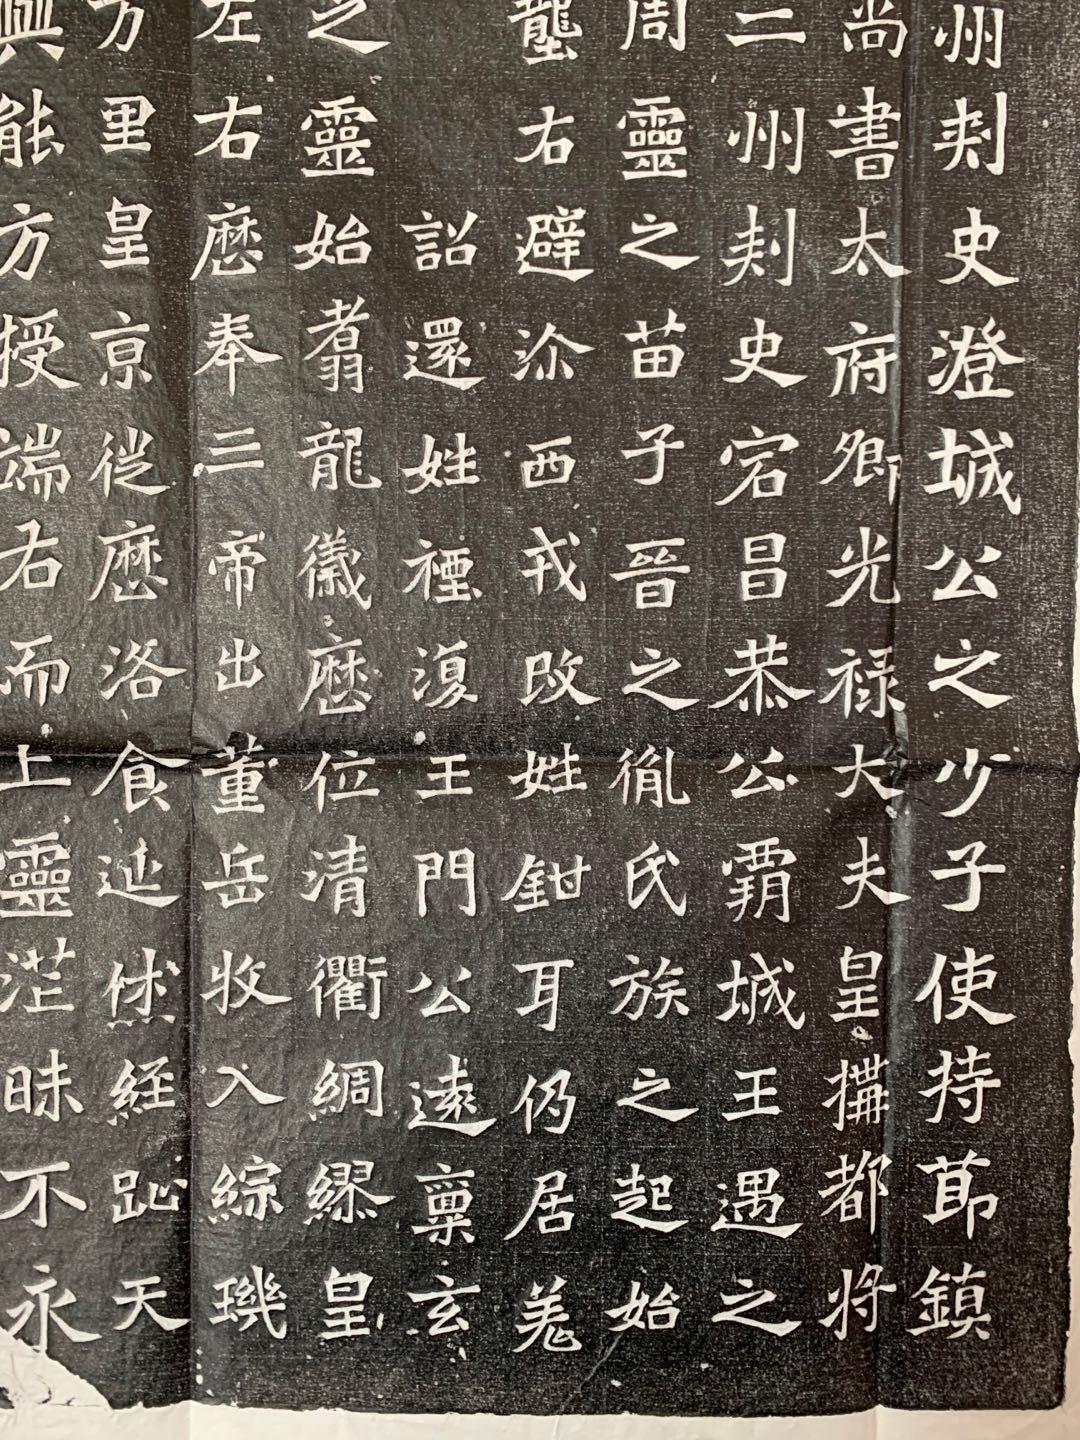 州刾史澄城公之少子使持節鎮
尚書太府卿光禄大夫皇搆都将
二州刾史宕昌恭公霸城王遇之
周靈之苗子晉之胤氏族之起始
蘢右避沵西戎改姓鉗耳仍居羗
詔還姓禋復王門公遠稟玄
之靈始翥龍徽應位清衢綢繆皇
左右應奉三帝出董岳收入綜璣
方里皇京従應洛食延然経趾天
興能方授端右而上靈茫昧不永